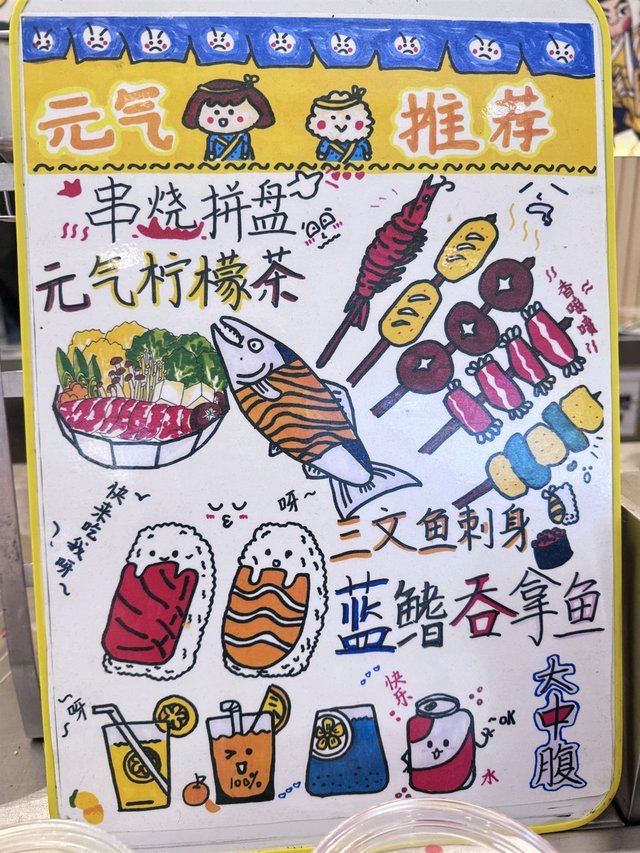 元气 推荐
串烧拼盘
元气柠檬茶
香喷喷
快来吃我呀~
呀~
三文鱼刺身
蓝鳍吞拿鱼
大中腹
呀~
100%
快乐
水
~OK